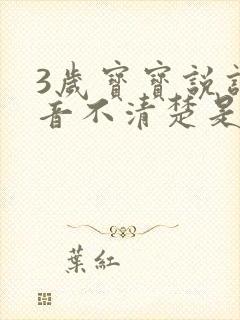 3歲寶寶說
音不清楚是
葉紅